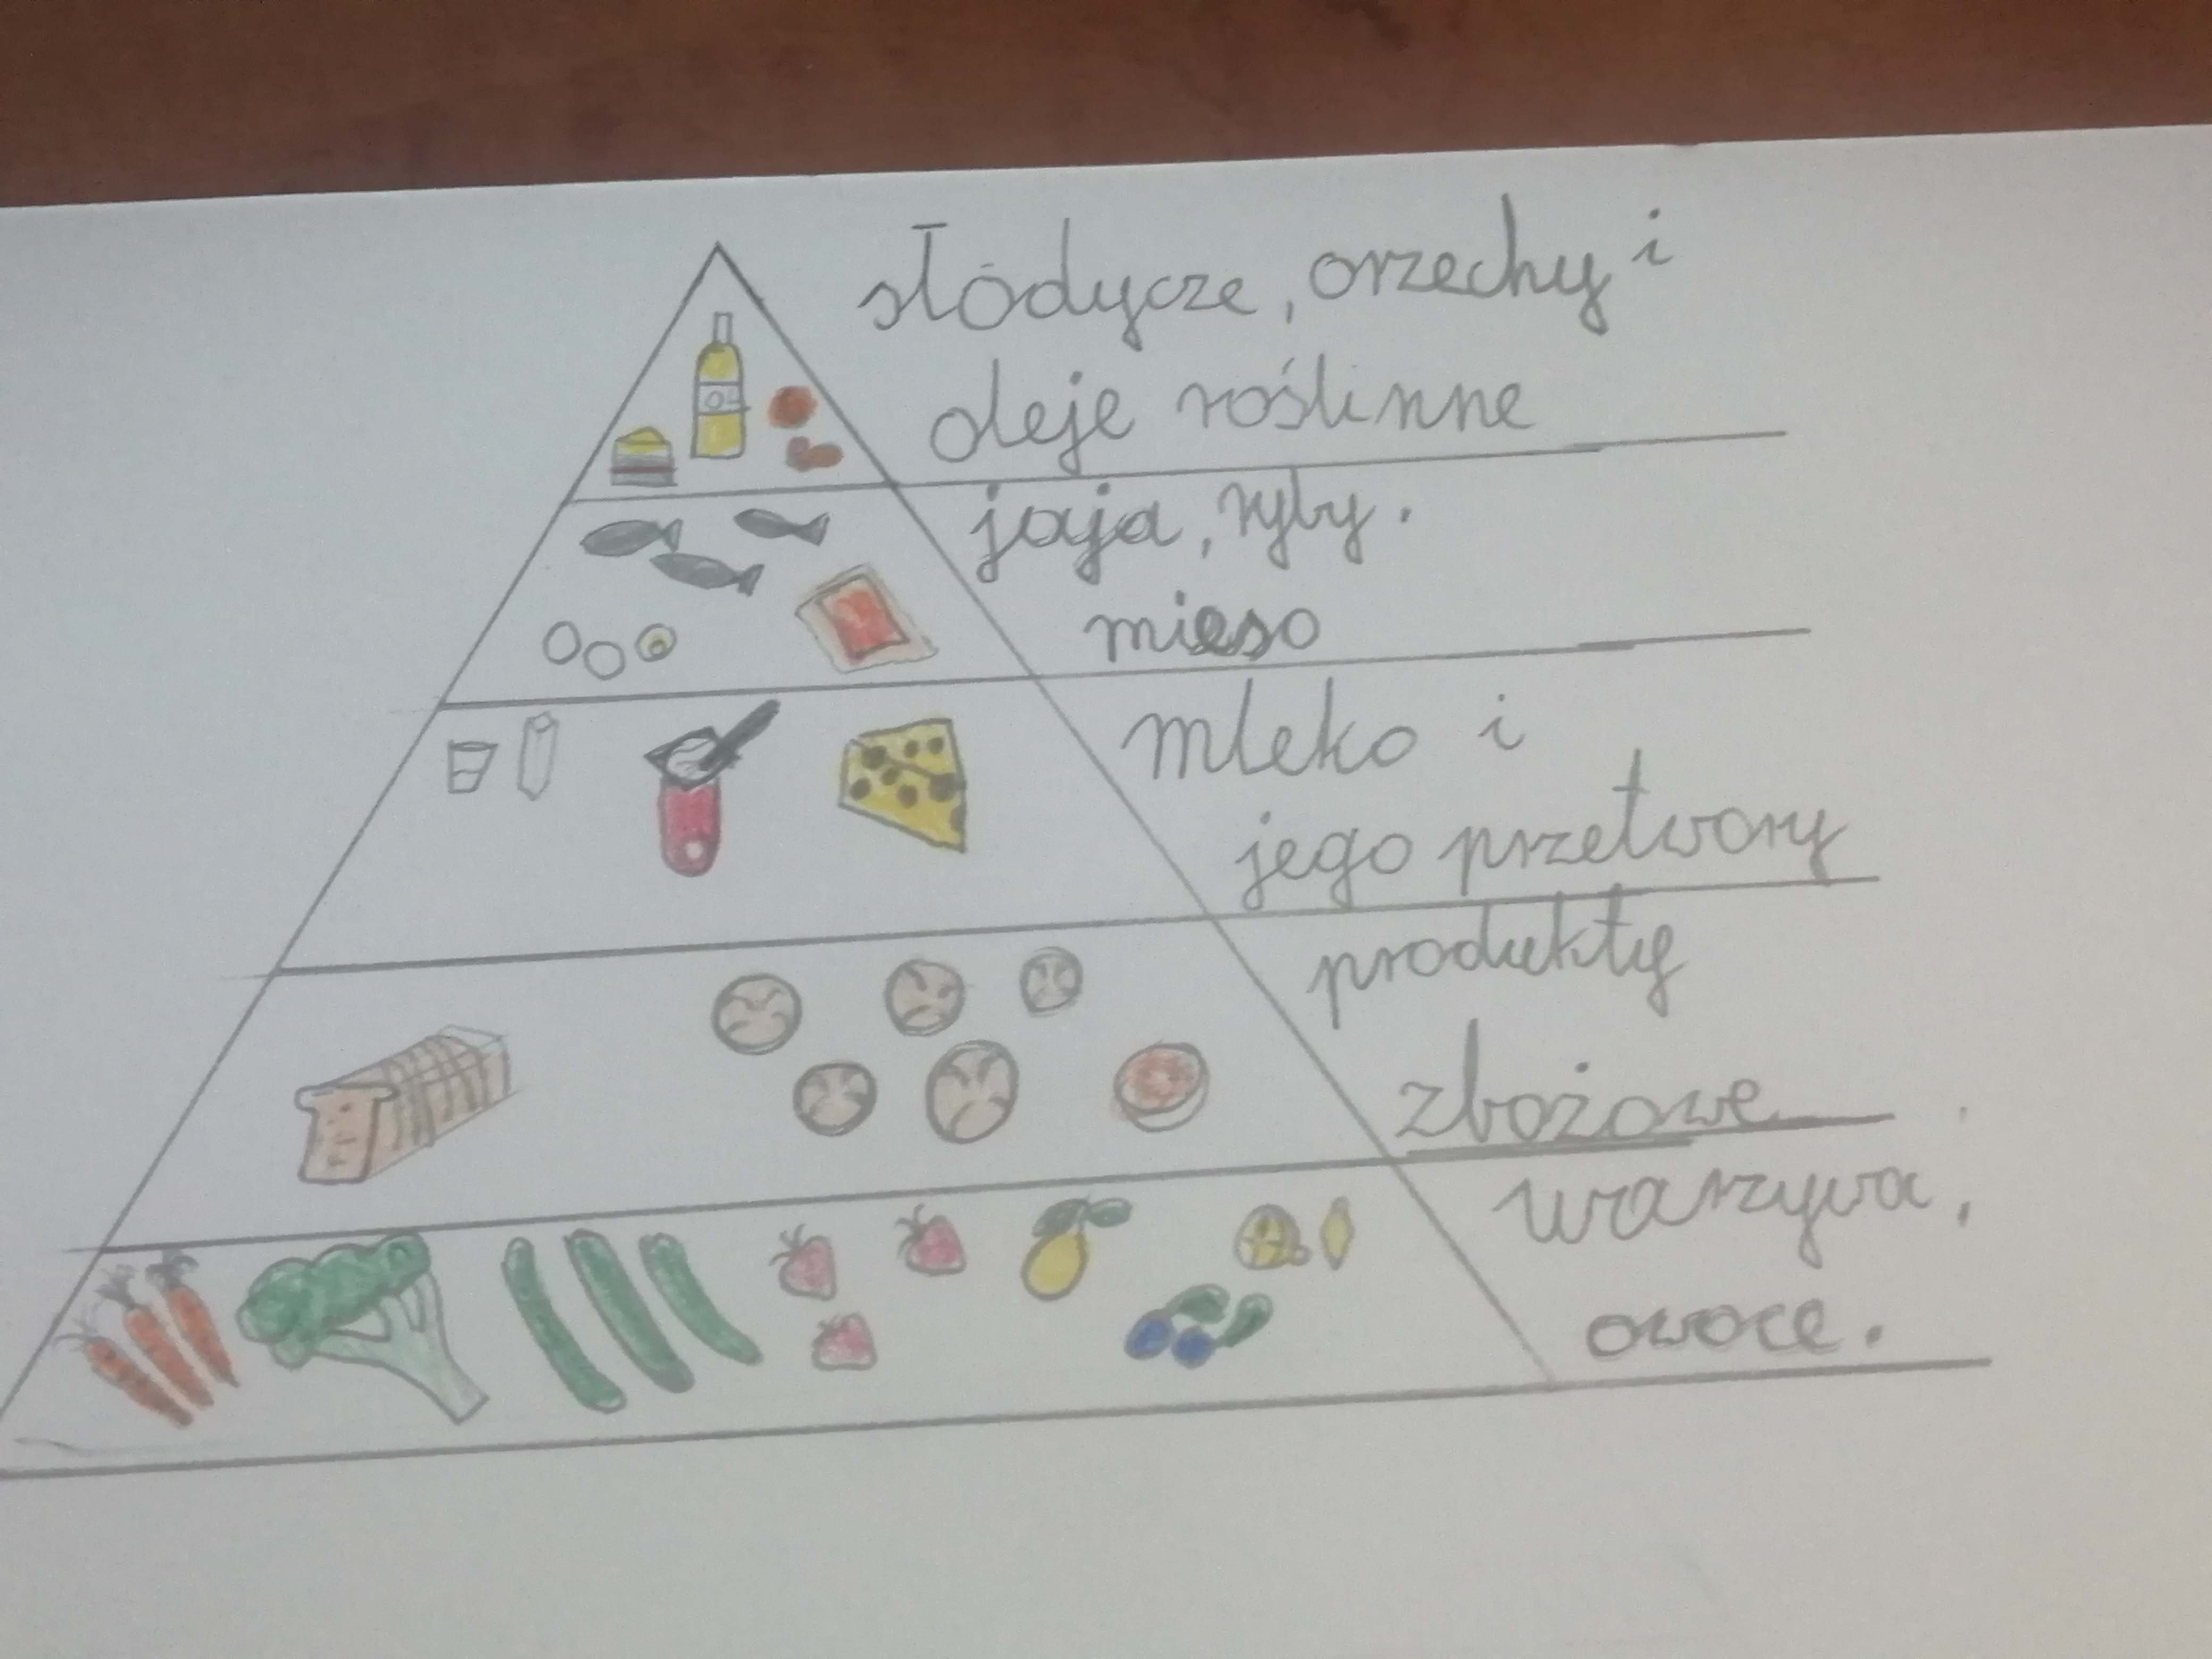 słódycze, orzechy i
oleje roślinne
jaja, ryby.
mieso
mleko i
jego przetwory
produkty
zbożowe
warzywa,
owoce.